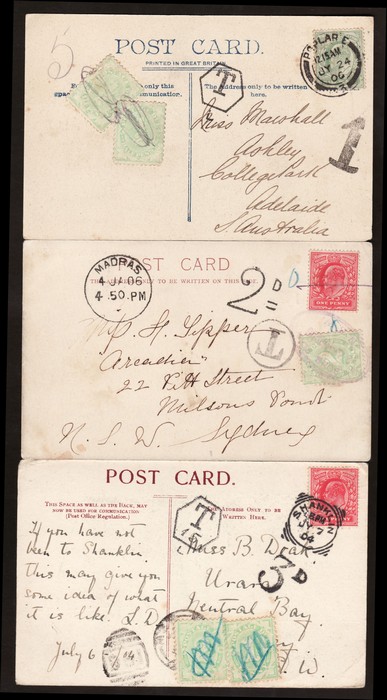 5
POST CARD.
PRINTED IN GREAT BRITAIN
The Address only to be written
here.
T
POPLAR E
12.15AM
24
06
1
Miss Marshall
Ashley
College Park
Adelaide
S. Australia
POST CARD
TO BE WRITTEN ON THIS
MADRAS
4 JA 06
4.50.PM
2D
T
ONE PENNY
H. Tipper
"Arcadia"
22 Pitt Street
Milsons Point
N. S. W. Sydney
POST CARD.
THIS SPACE AS WELL AS THE BACK, MAY
NOW BE USED FOR COMMUNICATION
(Post Office Regulation.)
ADDRESS ONLY TO BE
WRITTEN HERE.
T
15
SHANKL
04
3D
If you have not
been to Shanklin
this may give you
some idea of what
it is like. L.D.
July 6
Miss B.
Central Bay
W.